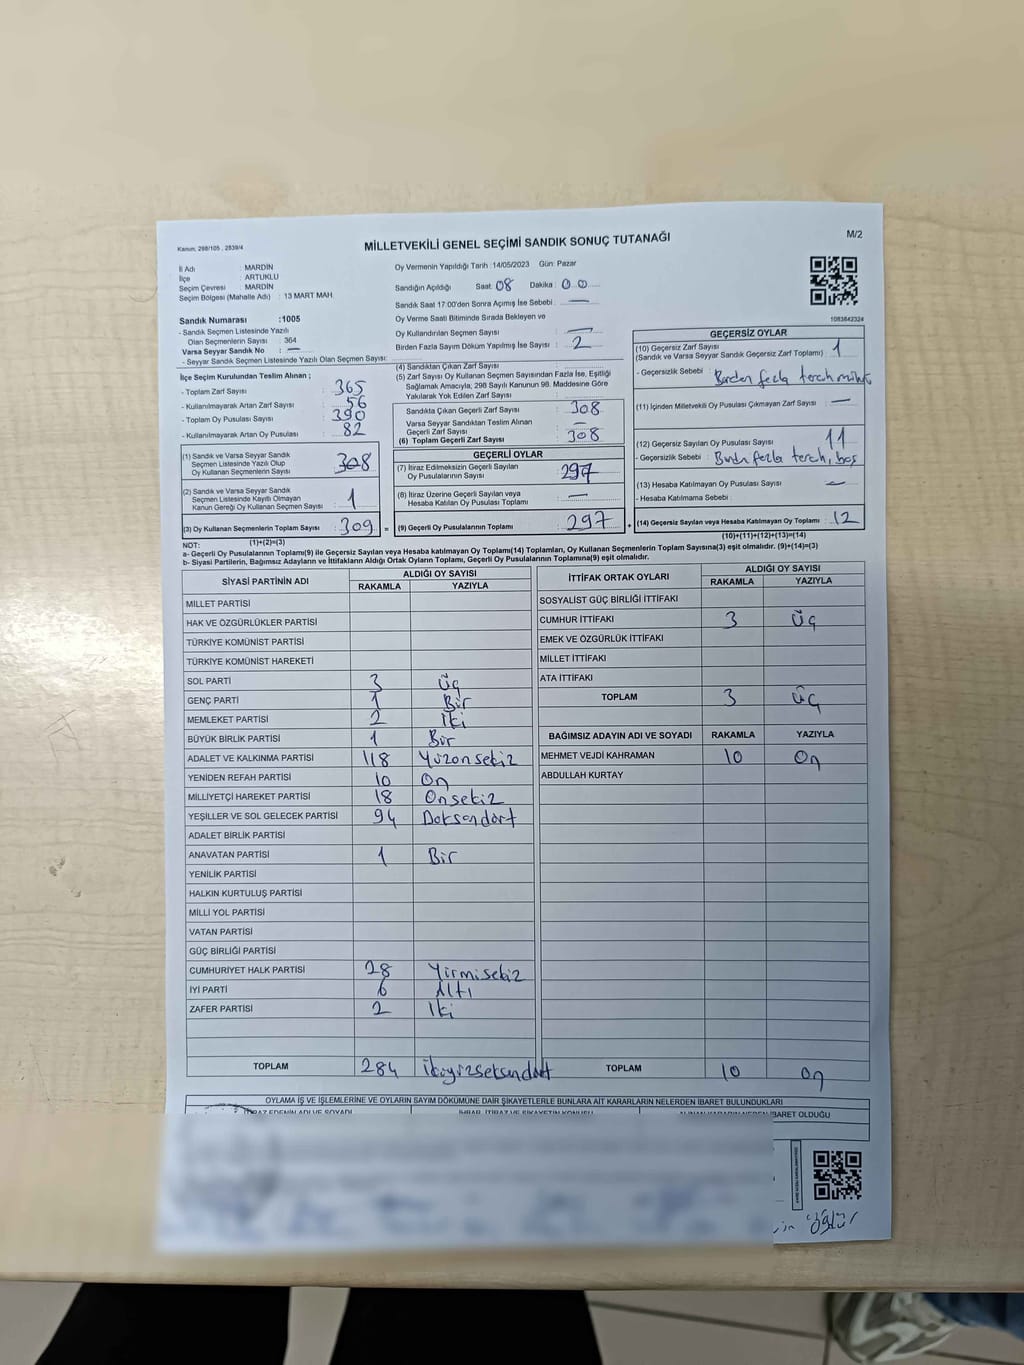 Kanun; 298/105 , 2839/4
MİLLETVEKİLİ GENEL SEÇİMİ SANDIK SONUÇ TUTANAĞI
M/2
İl Adı : MARDİN
İlçe : ARTUKLU
Seçim Çevresi : MARDİN
Seçim Bölgesi (Mahalle Adı) : 13 MART MAH.
Sandık Numarası :1005
- Sandık Seçmen Listesinde Yazılı
Olan Seçmenlerin Sayısı : 364
Varsa Seyyar Sandık No : —
- Seyyar Sandık Seçmen Listesinde Yazılı Olan Seçmen Sayısı:
Oy Vermenin Yapıldığı Tarih :14/05/2023 Gün: Pazar
Sandığın Açıldığı Saat: 08 Dakika: 00
Sandık Saat 17:00'den Sonra Açımış İse Sebebi : —
Oy Verme Saati Bitiminde Sırada Bekleyen ve
Oy Kullandırılan Seçmen Sayısı : —
Birden Fazla Sayım Döküm Yapılmış İse Sayısı : 2
1083642324
İlçe Seçim Kurulundan Teslim Alınan ;
- Toplam Zarf Sayısı : 365
- Kullanılmayarak Artan Zarf Sayısı : 56
- Toplam Oy Pusulası Sayısı : 390
- Kullanılmayarak Artan Oy Pusulası : 82
(1) Sandık ve Varsa Seyyar Sandık
Seçmen Listesinde Yazılı Olup
Oy Kullanan Seçmenlerin Sayısı : 308
(2) Sandık ve Varsa Seyyar Sandık
Seçmen Listesinde Kayıtlı Olmayan
Kanun Gereği Oy Kullanan Seçmen Sayısı : 1
(3) Oy Kullanan Seçmenlerin Toplam Sayısı : 309 =
(1)+(2)=(3)
(4) Sandıktan Çıkan Zarf Sayısı :
(5) Zarf Sayısı Oy Kullanan Seçmen Sayısından Fazla İse, Eşitliği
Sağlamak Amacıyla, 298 Sayılı Kanunun 98. Maddesine Göre
Yakılarak Yok Edilen Zarf Sayısı :
Sandıkta Çıkan Geçerli Zarf Sayısı : 308
Varsa Seyyar Sandıktan Teslim Alınan
Geçerli Zarf Sayısı : —
(6) Toplam Geçerli Zarf Sayısı : 308
GEÇERLİ OYLAR
(7) İtiraz Edilmeksizin Geçerli Sayılan
Oy Pusulalarının Sayısı : 297
(8) İtiraz Üzerine Geçerli Sayılan veya
Hesaba Katılan Oy Pusulası Toplamı : —
(9) Geçerli Oy Pusulalarının Toplamı : 297 +
GEÇERSİZ OYLAR
(10) Geçersiz Zarf Sayısı
(Sandık ve Varsa Seyyar Sandık Geçersiz Zarf Toplamı) : 1
- Geçersizlik Sebebi : Birden fazla tercih mühür
(11) İçinden Milletvekili Oy Pusulası Çıkmayan Zarf Sayısı : —
(12) Geçersiz Sayılan Oy Pusulası Sayısı : 11
- Geçersizlik Sebebi : Birden fazla tercih, boş
(13) Hesaba Katılmayan Oy Pusulası Sayısı : —
- Hesaba Katılmama Sebebi :
(14) Geçersiz Sayılan veya Hesaba Katılmayan Oy Toplamı : 12
(10)+(11)+(12)+(13)=(14)
NOT:
a- Geçerli Oy Pusulalarının Toplamı(9) ile Geçersiz Sayılan veya Hesaba katılmayan Oy Toplamı(14) Toplamları, Oy Kullanan Seçmenlerin Toplam Sayısına(3) eşit olmalıdır. (9)+(14)=(3)
b- Siyasi Partilerin, Bağımsız Adayların ve İttifakların Aldığı Ortak Oyların Toplamı, Geçerli Oy Pusulalarının Toplamına(9) eşit olmalıdır.
SİYASİ PARTİNİN ADI ALDIĞI OY SAYISI
RAKAMLA YAZIYLA
MİLLET PARTİSİ
HAK VE ÖZGÜRLÜKLER PARTİSİ
TÜRKİYE KOMÜNİST PARTİSİ
TÜRKİYE KOMÜNİST HAREKETİ
SOL PARTİ 3 Üç
GENÇ PARTİ 1 Bir
MEMLEKET PARTİSİ 2 İki
BÜYÜK BİRLİK PARTİSİ 1 Bir
ADALET VE KALKINMA PARTİSİ 118 Yüzonsekiz
YENİDEN REFAH PARTİSİ 10 On
MİLLİYETÇİ HAREKET PARTİSİ 18 Onsekiz
YEŞİLLER VE SOL GELECEK PARTİSİ 94 Doksandört
ADALET BİRLİK PARTİSİ
ANAVATAN PARTİSİ 1 Bir
YENİLİK PARTİSİ
HALKIN KURTULUŞ PARTİSİ
MİLLİ YOL PARTİSİ
VATAN PARTİSİ
GÜÇ BİRLİĞİ PARTİSİ
CUMHURİYET HALK PARTİSİ 28 Yirmisekiz
İYİ PARTİ 6 Altı
ZAFER PARTİSİ 2 İki
TOPLAM 284 İkiyüzseksendört
İTTİFAK ORTAK OYLARI ALDIĞI OY SAYISI
RAKAMLA YAZIYLA
SOSYALİST GÜÇ BİRLİĞİ İTTİFAKI
CUMHUR İTTİFAKI 3 Üç
EMEK VE ÖZGÜRLÜK İTTİFAKI
MİLLET İTTİFAKI
ATA İTTİFAKI
TOPLAM 3 Üç
BAĞIMSIZ ADAYIN ADI VE SOYADI RAKAMLA YAZIYLA
MEHMET VEJDİ KAHRAMAN 10 On
ABDULLAH KURTAY
TOPLAM 10 On
OYLAMA İŞ VE İŞLEMLERİNE VE OYLARIN SAYIM DÖKÜMÜNE DAİR ŞİKAYETLERLE BUNLARA AİT KARARLARIN NELERDEN İBARET BULUNDUKLARI